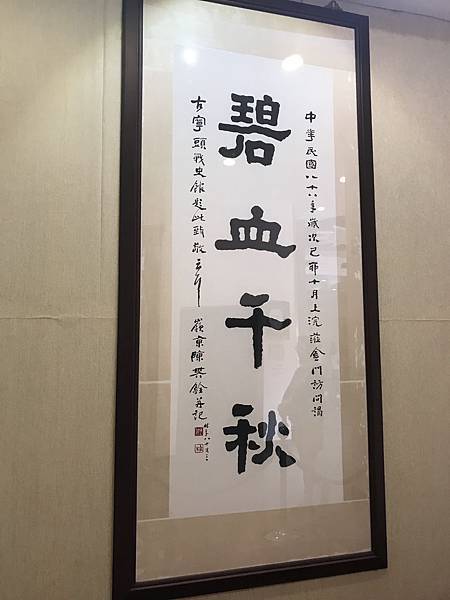 中華民國八十八年歲次己卯十月上浣蒞金門訪問謁
碧血千秋
古寧頭戰史館題此致敬云爾 嶺東陳其銓并記
時年八十又三